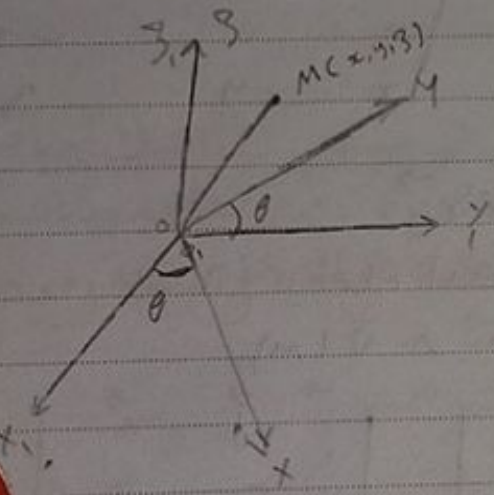 z₁ z
M(x,y,z)
y
O
θ
y₁
θ
x₁
x